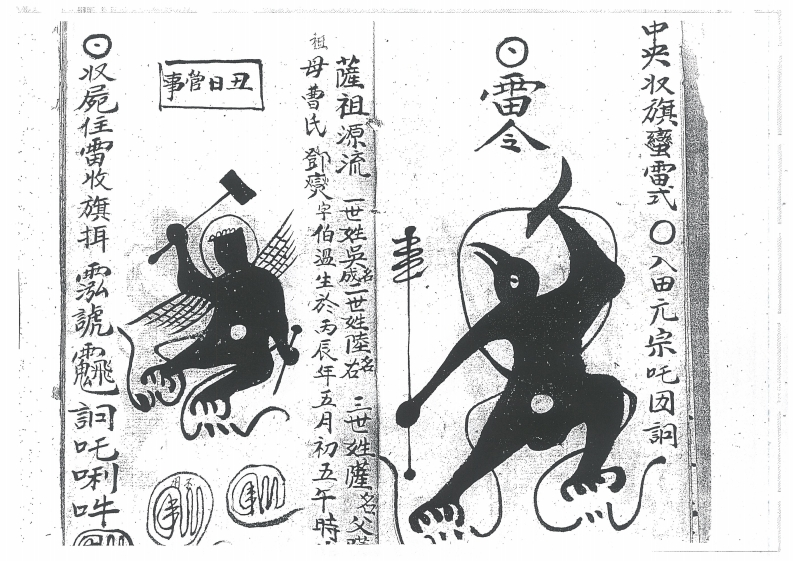 中央収旗蠻雷式〇入田元宗吒囡詗
雷令
事
薩祖源流 一世姓吳名成二世姓陸名右 三世姓薩名父
祖母曹氏 鄧爕字伯溫生於丙辰年五月初五午時
丑日管事
収屍住雷收旗揖 號 詗吒唎吽